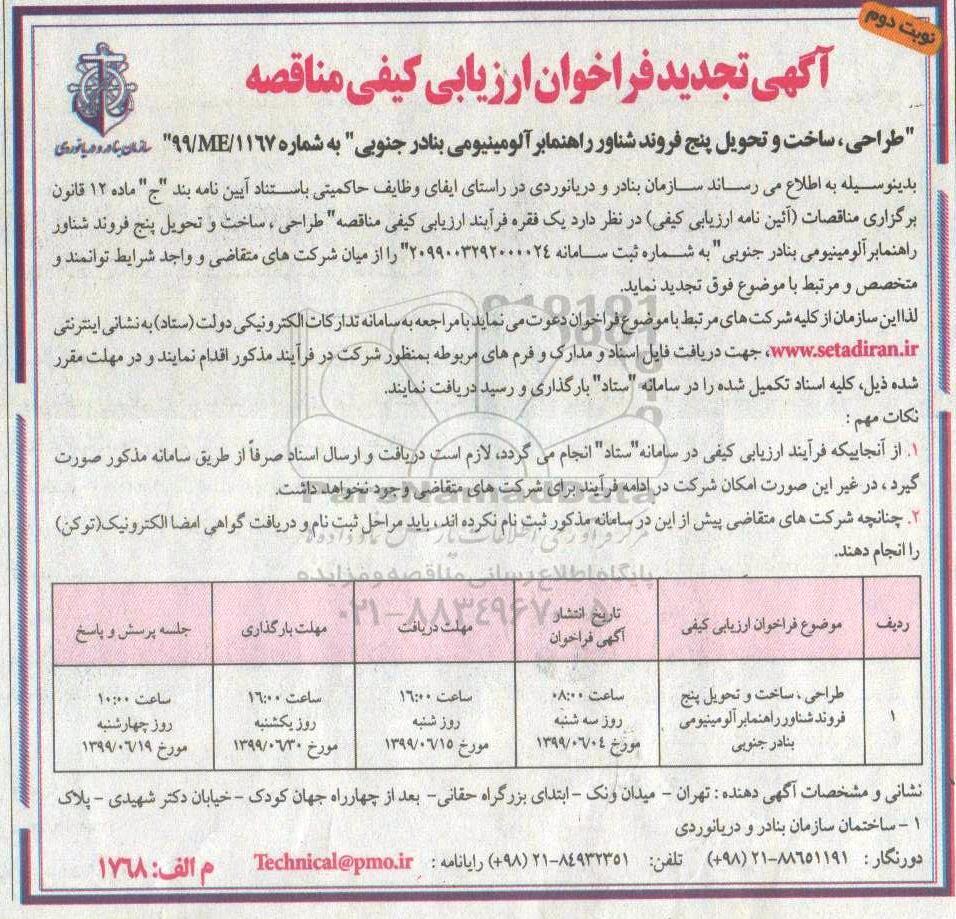 نوبت دوم
آگهی تجدید فراخوان ارزیابی کیفی مناقصه
سازمان بنادر و دریانوردی
"طراحی ، ساخت و تحویل پنج فروند شناور راهنمابر آلومینیومی بنادر جنوبی" به شماره ۹۹/ME/۱۱۶۷"
بدینوسیله به اطلاع می رساند سازمان بنادر و دریانوردی در راستای ایفای وظایف حاکمیتی باستناد آیین نامه بند "ج" ماده ۱۲ قانون
برگزاری مناقصات (آئین نامه ارزیابی کیفی) در نظر دارد یک فقره فرآیند ارزیابی کیفی مناقصه" طراحی ، ساخت و تحویل پنج فروند شناور
راهنمابر آلومینیومی بنادر جنوبی" به شماره ثبت سامانه ۲۰۹۹۰۰۳۲۹۲۰۰۰۰۲۴" را از میان شرکت های متقاضی و واجد شرایط توانمند و
متخصص و مرتبط با موضوع فوق تجدید نماید.
لذا این سازمان از کلیه شرکت های مرتبط با موضوع فراخوان دعوت می نماید با مراجعه به سامانه تدارکات الکترونیکی دولت (ستاد) به نشانی اینترنتی
www.setadiran.ir، جهت دریافت فایل اسناد و مدارک و فرم های مربوطه بمنظور شرکت در فرآیند مذکور اقدام نمایند و در مهلت مقرر
شده ذیل، کلیه اسناد تکمیل شده را در سامانه "ستاد" بارگذاری و رسید دریافت نمایند.
نکات مهم :
۱. از آنجاییکه فرآیند ارزیابی کیفی در سامانه"ستاد" انجام می گردد، لازم است دریافت و ارسال اسناد صرفاً از طریق سامانه مذکور صورت
گیرد ، در غیر این صورت امکان شرکت در ادامه فرآیند برای شرکت های متقاضی وجود نخواهد داشت.
۲. چنانچه شرکت های متقاضی پیش از این در سامانه مذکور ثبت نام نکرده اند ، باید مراحل ثبت نام و دریافت گواهی امضا الکترونیک(توکن)
را انجام دهند.
پایگاه اطلاع رسانی مناقصه و مزایده
ردیف
موضوع فراخوان ارزیابی کیفی
تاریخ انتشار
آگهی فراخوان
مهلت دریافت
مهلت بارگذاری
جلسه پرسش و پاسخ
۱
طراحی ، ساخت و تحویل پنج
فروند شناور راهنمابر آلومینیومی
بنادر جنوبی
ساعت ۰۸:۰۰
روز سه شنبه
مورخ ۱۳۹۹/۰۶/۰۴
ساعت ۱۶:۰۰
روز شنبه
مورخ ۱۳۹۹/۰۶/۱۵
ساعت ۱۶:۰۰
روز یکشنبه
مورخ ۱۳۹۹/۰۶/۳۰
ساعت ۱۰:۰۰
روز چهارشنبه
مورخ ۱۳۹۹/۰۶/۱۹
نشانی و مشخصات آگهی دهنده : تهران - میدان ونک - ابتدای بزرگراه حقانی- بعد از چهارراه جهان کودک - خیابان دکتر شهیدی - پلاک
۱ - ساختمان سازمان بنادر و دریانوردی
دورنگار : ۸۸۶۵۱۱۹۱-۲۱ (۹۸+) تلفن: ۸۴۹۳۲۳۵۱-۲۱ (۹۸+) رایانامه : Technical@pmo.ir م الف: ۱۷۶۸